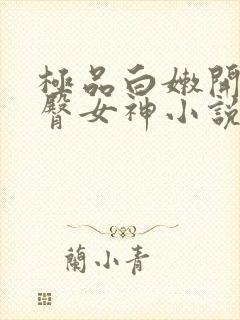 極品白嫩開
臀女神小說
蘭小青